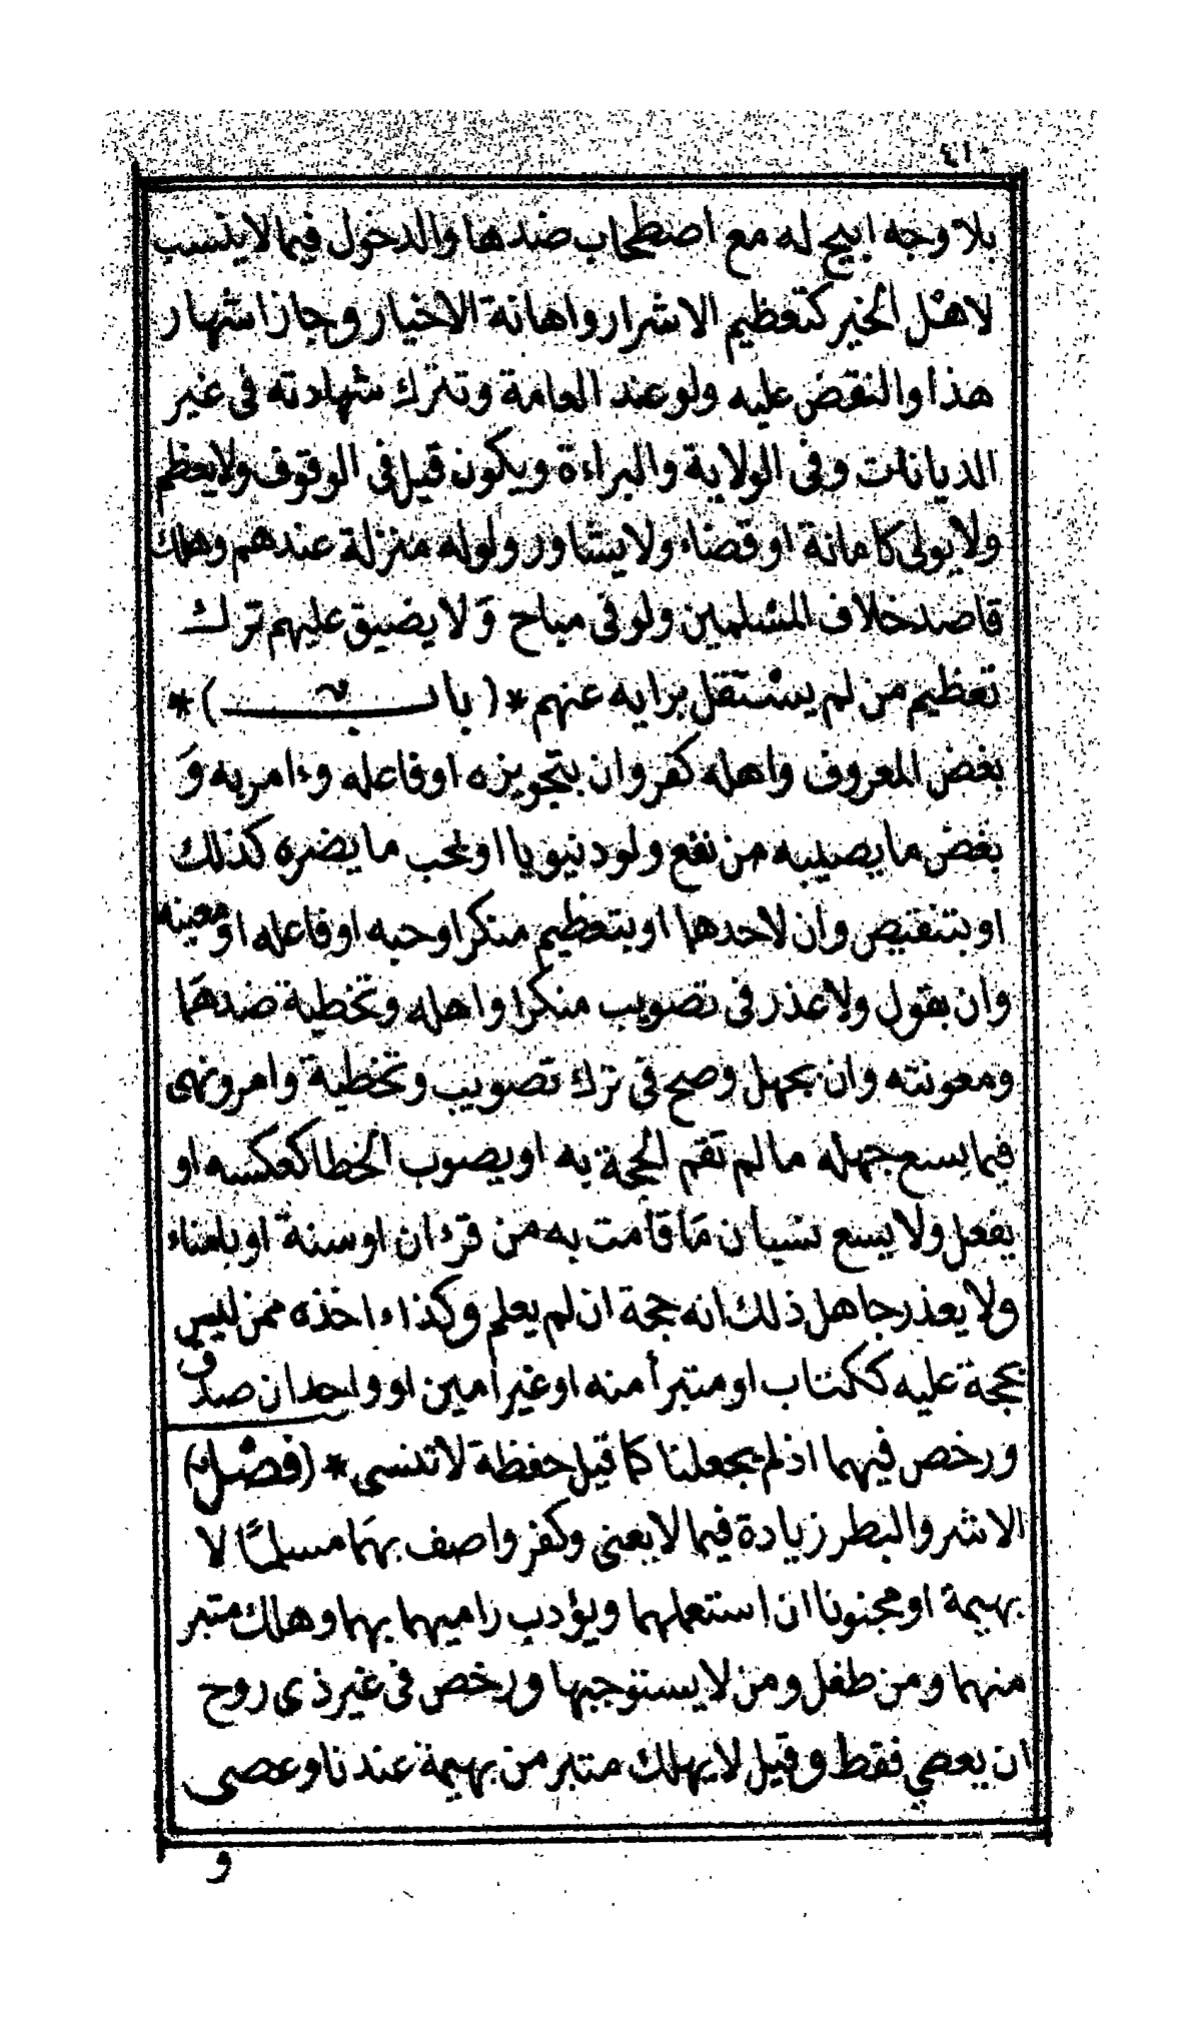 ٤١٠
بلا وجه ابيح له مع اصطحاب ضدها والدخول فيما لا ينسب
لاهل الخير كتعظيم الاشرار واهانة الاخيار وجاز اشهار
هذا والنقض عليه ولو عند العامة وتترك شهادته فى غير
الديانات وفى الولاية والبراءة ويكون قيل فى الوقوف ولا يعظم
ولا يولى كامانة او قضاء ولا يشاور ولو له منزلة عندهم وهلك
قاصد خلاف المسلمين ولو فى مباح وَلا يضيق عليهم ترك
تعظيم من لم يستقل برايه عنهم * ( باب ) *
بغض المعروف واهله كفر وان بتجويزه او فاعله وءامر به وَ
بغض ما يصيبه من نفع ولو دنيويا او لمحب ما يضره كذلك
او بتنقيص وان لاحدهما او بتعظيم منكر اوحبه او فاعله او معينه
وان بقول ولا عذر فى تصويب منكر او اهله وتخطية ضدهَما
ومعونته وان بجهل وصح فى ترك تصويب وتخطية وامر ونهى
فيما يسع جهله ما لم تقم الحجة به او يصوب الخطا كعكسه او
يفعل ولا يسع نسيان مَا قامت به من قرءان او سنة او باسناء
ولا يعذر جاهل ذلك انه حجة ان لم يعلم وكذا ءاخذه ممن ليس
بحجة عليه ككتاب او متبرأ منه او غير أمين او واحد ان صدق
ورخص فيهما اذ لم يجعلنا كما قيل حفظة لا تنسى * (فصل)
الاشر والبطر زيادة فيما لا يعنى وكفر واصف بهَما مسلمًا لا
بهيمة او مجنونا ان استعملهما ويؤدب راميهما بهما وهلك متبر
منهما ومن طفل ومن لا يستوجبها ورخص فى غير ذى روح
ان يعصي فقط وقيل لا يهلك متبر من بهيمة عندنا وعصى
و